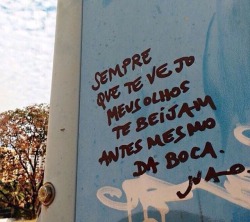 SEMPRE
QUE TE VEJO
MEUS OLHOS
TE BEIJAM
ANTES MESMO
DA BOCA.